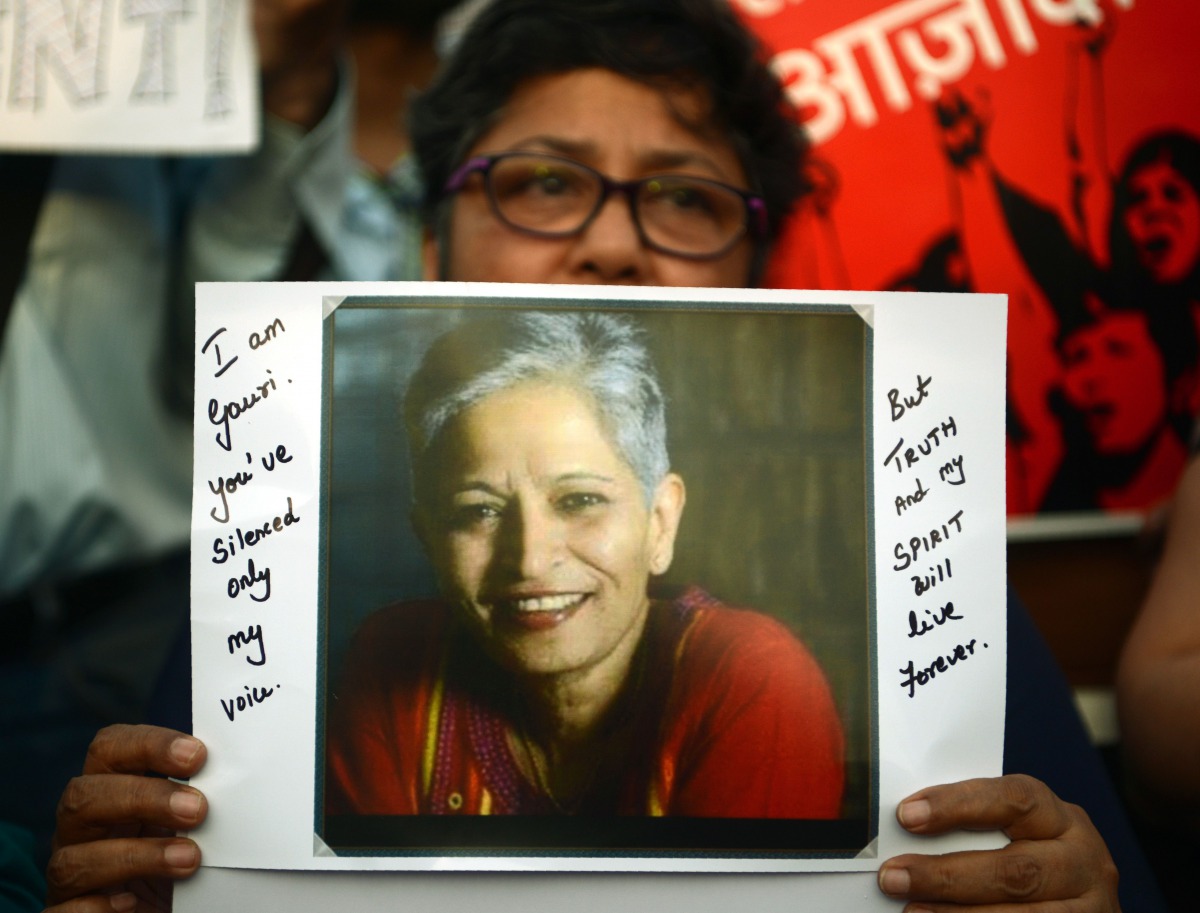 ENT!
आज़ादी
I am
Gauri.
You've
Silenced
only
my
voice.
But
TRUTH
And my
SPIRIT
will
live
Forever.